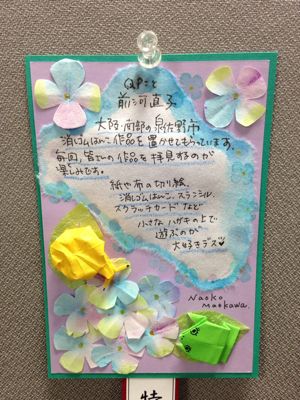 QPこと
前河直子
大阪・南部の泉佐野市
消しゴムはんこ作品を置かせてもらっています。
毎回、皆さんの作品を拝見するのが
楽しみです。
紙や布の切り絵、
消しゴムはんこ、ステンシル、
スクラッチカードなど
小さなハガキの上で
遊ぶのが
大好きデス♡
Naoko
Maekawa